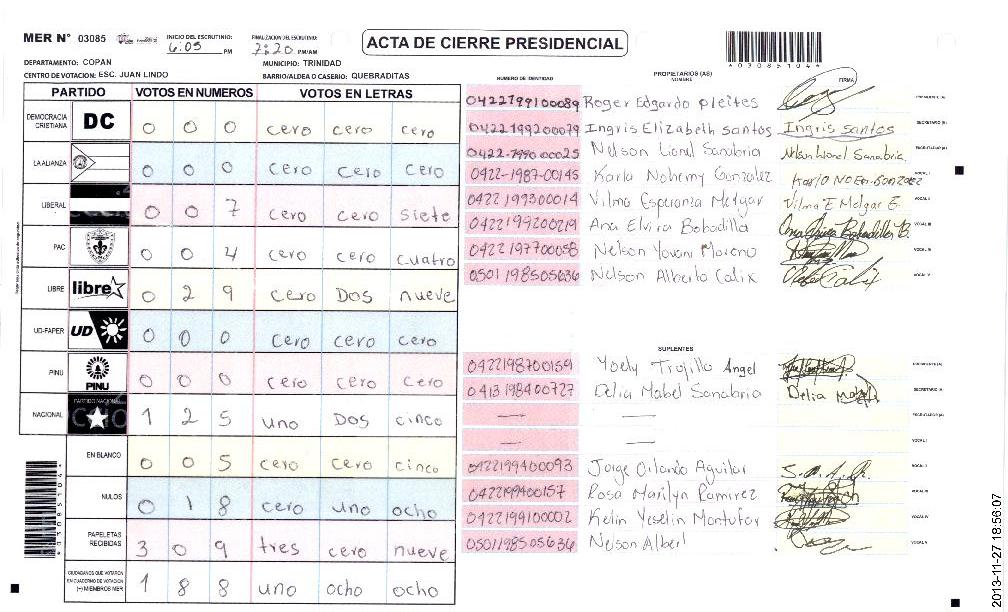 MER N° 03085
INICIO DEL ESCRUTINIO: 6:05 PM
FINALIZACION DEL ESCRUTINIO: 7:20 PM/AM
ACTA DE CIERRE PRESIDENCIAL
*030851044*
DEPARTAMENTO: COPAN
MUNICIPIO: TRINIDAD
CENTRO DE VOTACION: ESC. JUAN LINDO
BARRIO/ALDEA O CASERIO: QUEBRADITAS
PARTIDO VOTOS EN NUMEROS VOTOS EN LETRAS
DEMOCRACIA CRISTIANA DC 0 0 0 cero cero cero
LA ALIANZA 0 0 0 cero cero cero
LIBERAL 0 0 7 cero cero siete
PAC 0 0 4 cero cero cuatro
LIBRE libre 0 2 9 cero Dos nueve
UD-FAPER UD 0 0 0 cero cero cero
PINU PINU 0 0 0 cero cero cero
NACIONAL PARTIDO NACIONAL 1 2 5 uno Dos cinco
EN BLANCO 0 0 5 cero cero cinco
NULOS 0 1 8 cero uno ocho
PAPELETAS RECIBIDAS 3 0 9 tres cero nueve
CIUDADANOS QUE VOTARON EN CUADERNO DE VOTACION (+) MIEMBROS MER 1 8 8 uno ocho ocho
*030851044*
NUMERO DE IDENTIDAD PROPIETARIOS (AS) NOMBRE FIRMA
0422199100089 Roger Edgardo pleites PRESIDENTE (A)
0422199200079 Ingris Elizabeth santos Ingris santos SECRETARIO (A)
Nelson Lionel Sanabria Nelson Lionel Sanabria. ESCRUTADOR (A)
0422-1987-00145 Karla Nohemy Gonzalez VOCAL I
0422199300014 Vilma Esperanza Melgar Vilma E Melgar E. VOCAL II
0422199200219 Ana Elvira Bobadilla VOCAL III
0422197700058 Nelson Yovani Moreno VOCAL IV
0501198505636 Nelson Alberto Calix VOCAL V
SUPLENTES
0422198700159 Yoely Trojillo Angel PRESIDENTE (A)
0413198400727 Delia Mabel Sanabria Delia SECRETARIO (A)
— — ESCRUTADOR (A)
— — VOCAL I
0422199400093 Jorge Orlando Aguilar VOCAL II
0422199400157 Rosa Marilyn Ramirez VOCAL III
0422199100002 Kelin Yeselin Montufar VOCAL IV
0501198505636 Nelson Albert VOCAL V
2013-11-27 18:56:07